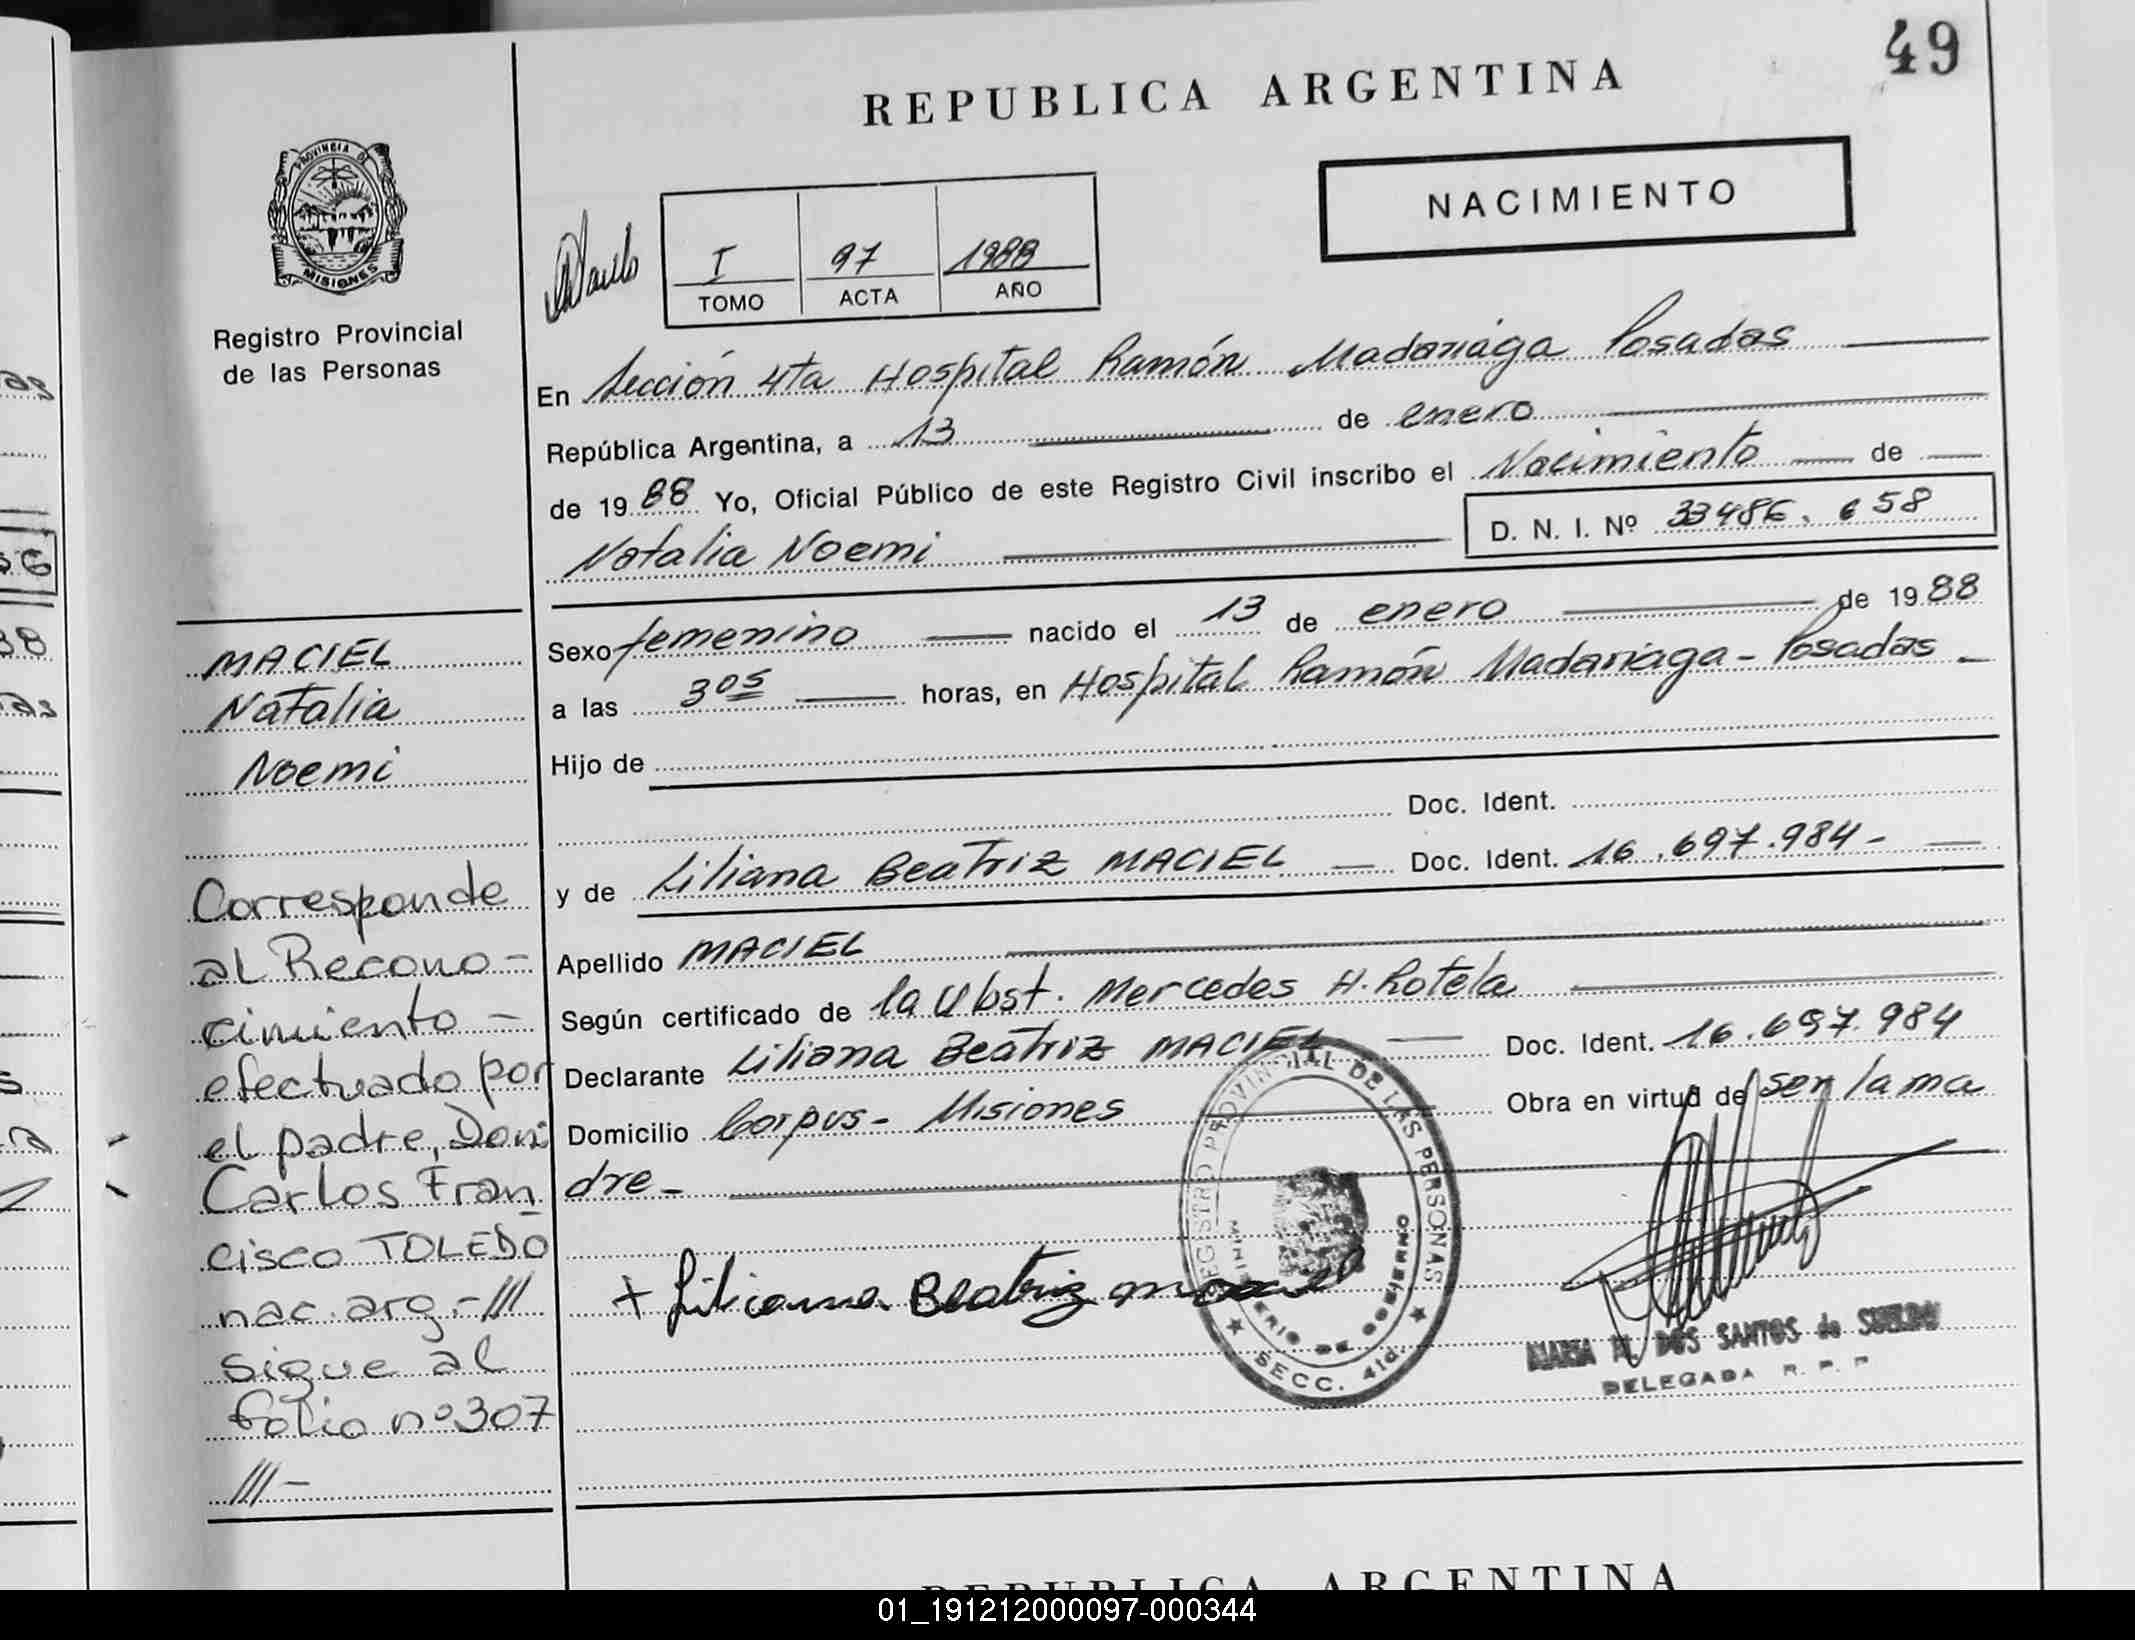 49
REPUBLICA ARGENTINA
NACIMIENTO
PROVINCIA DE
MISIONES
Registro Provincial
de las Personas
I 97 1988
TOMO ACTA AÑO
En Sección 4ta Hospital Ramón Madariaga Posadas
República Argentina, a 13 de enero
de 1988 Yo, Oficial Público de este Registro Civil inscribo el Nacimiento de
Natalia Noemi D. N. I. Nº 33486.658
Sexo femenino nacido el 13 de enero de 1988
a las 3 05 horas, en Hospital Ramón Madariaga - Posadas -
Hijo de
Doc. Ident.
y de Liliana Beatriz MACIEL Doc. Ident. 16.697.984-
Apellido MACIEL
Según certificado de la Obst. Mercedes H. Rotela
Declarante Liliana Beatriz MACIEL Doc. Ident. 16.697.984
Domicilio Corpus - Misiones Obra en virtud de ser la ma
dre -
+ Liliana Beatriz maciel
MACIEL
Natalia
Noemi
Corresponde
al Recono-
cimiento -
efectuado por
el padre, Don
Carlos Fran
cisco TOLEDO
nac. arg.- ///
sigue al
folio nº 307
/// -
REGISTRO PROVINCIAL DE LAS PERSONAS
MINISTERIO DE GOBIERNO
SECC. 4ta.
MARIA DOS SANTOS de
DELEGADA R. P. P
REPUBLICA ARGENTINA
01_191212000097-000344